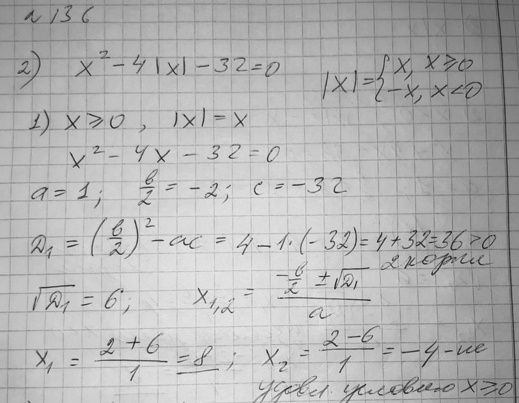 № 136
2) x² - 4|x| - 32 = 0    |x| = { x, x ≥ 0
{ -x, x < 0
1) x ≥ 0, |x| = x
x² - 4x - 32 = 0
a = 1; b/2 = -2; c = -32
D₁ = (b/2)² - ac = 4 - 1·(-32) = 4 + 32 = 36 > 0
2 корня
√D₁ = 6; x₁,₂ = (-b/2 ± √D₁)/a
x₁ = (2 + 6)/1 = 8; x₂ = (2 - 6)/1 = -4 - не
удовл условию x ≥ 0